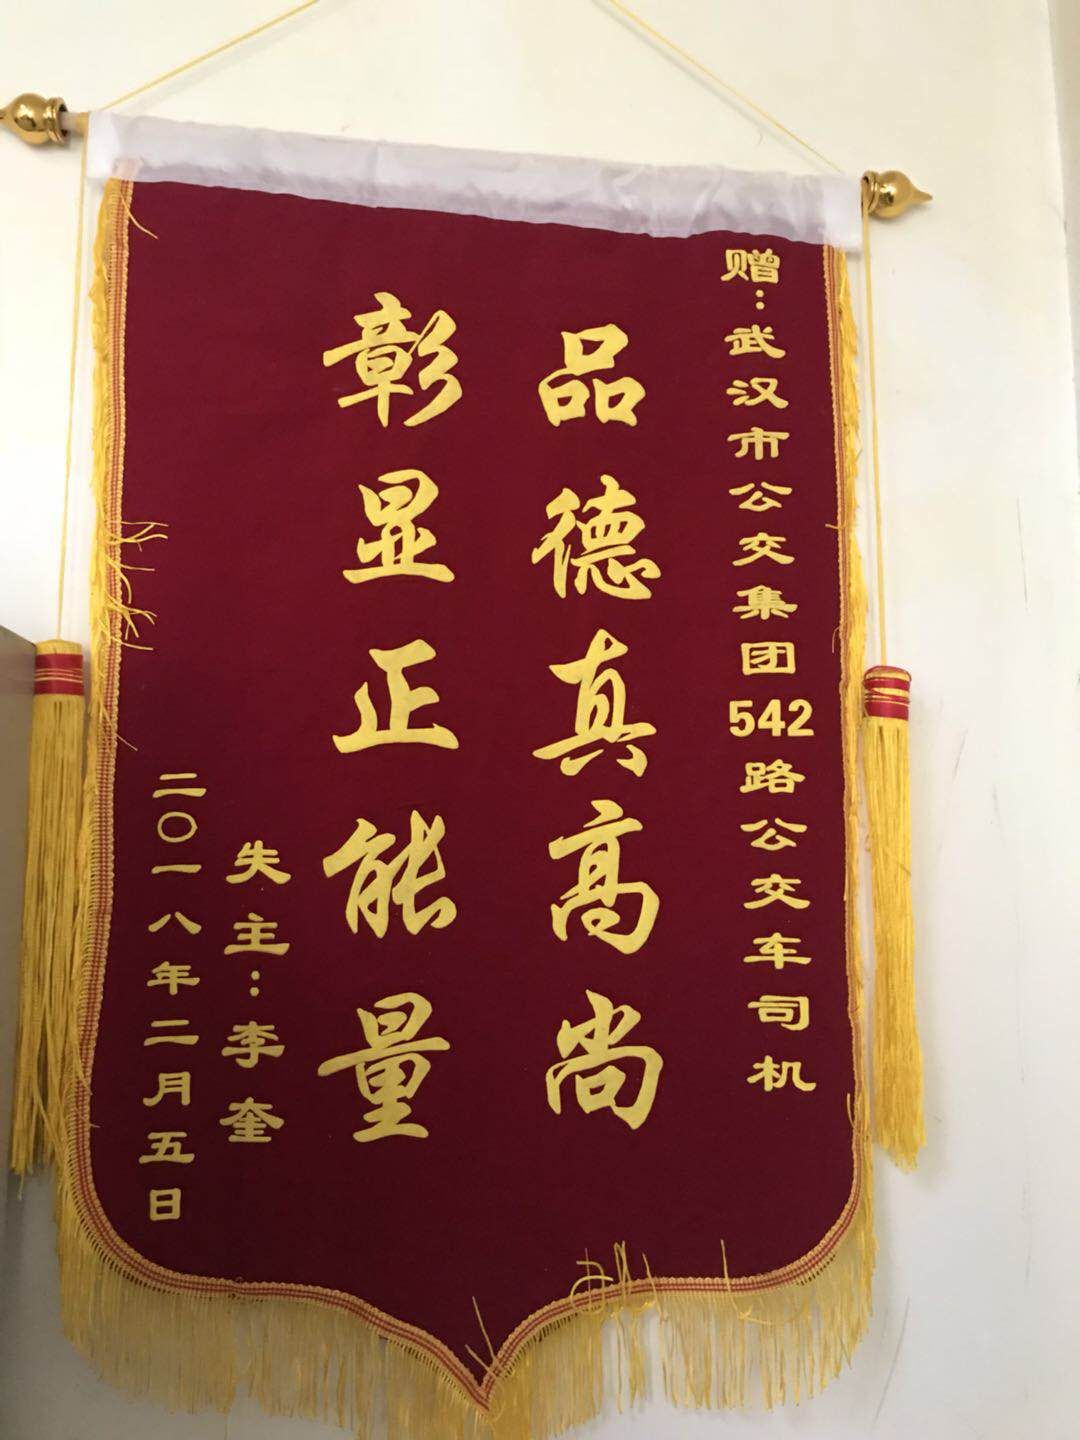 赠:武汉市公交集团542路公交车司机
品德真高尚
彰显正能量
失主:李奎
二〇一八年二月五日